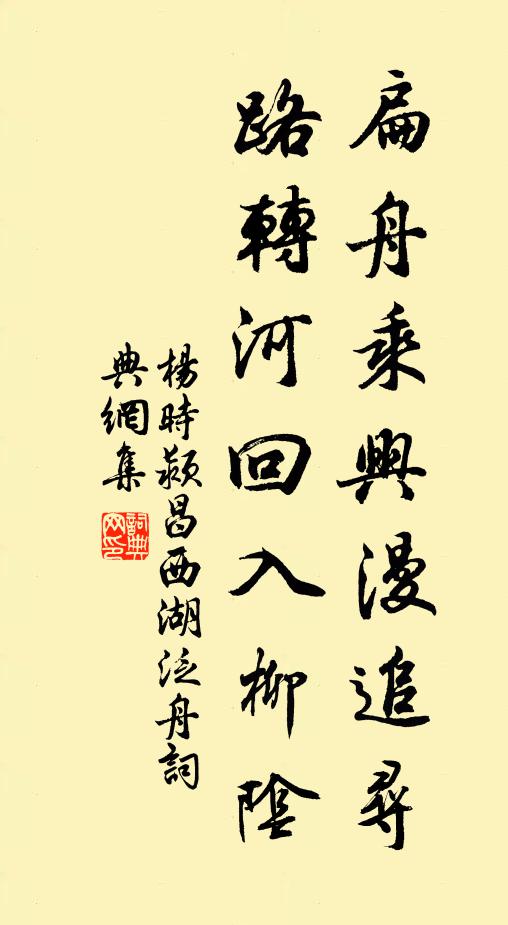 扁舟乘興漫追尋
路轉河回入柳陰
楊時潁昌西湖泛舟詞
典網集
詞典網印